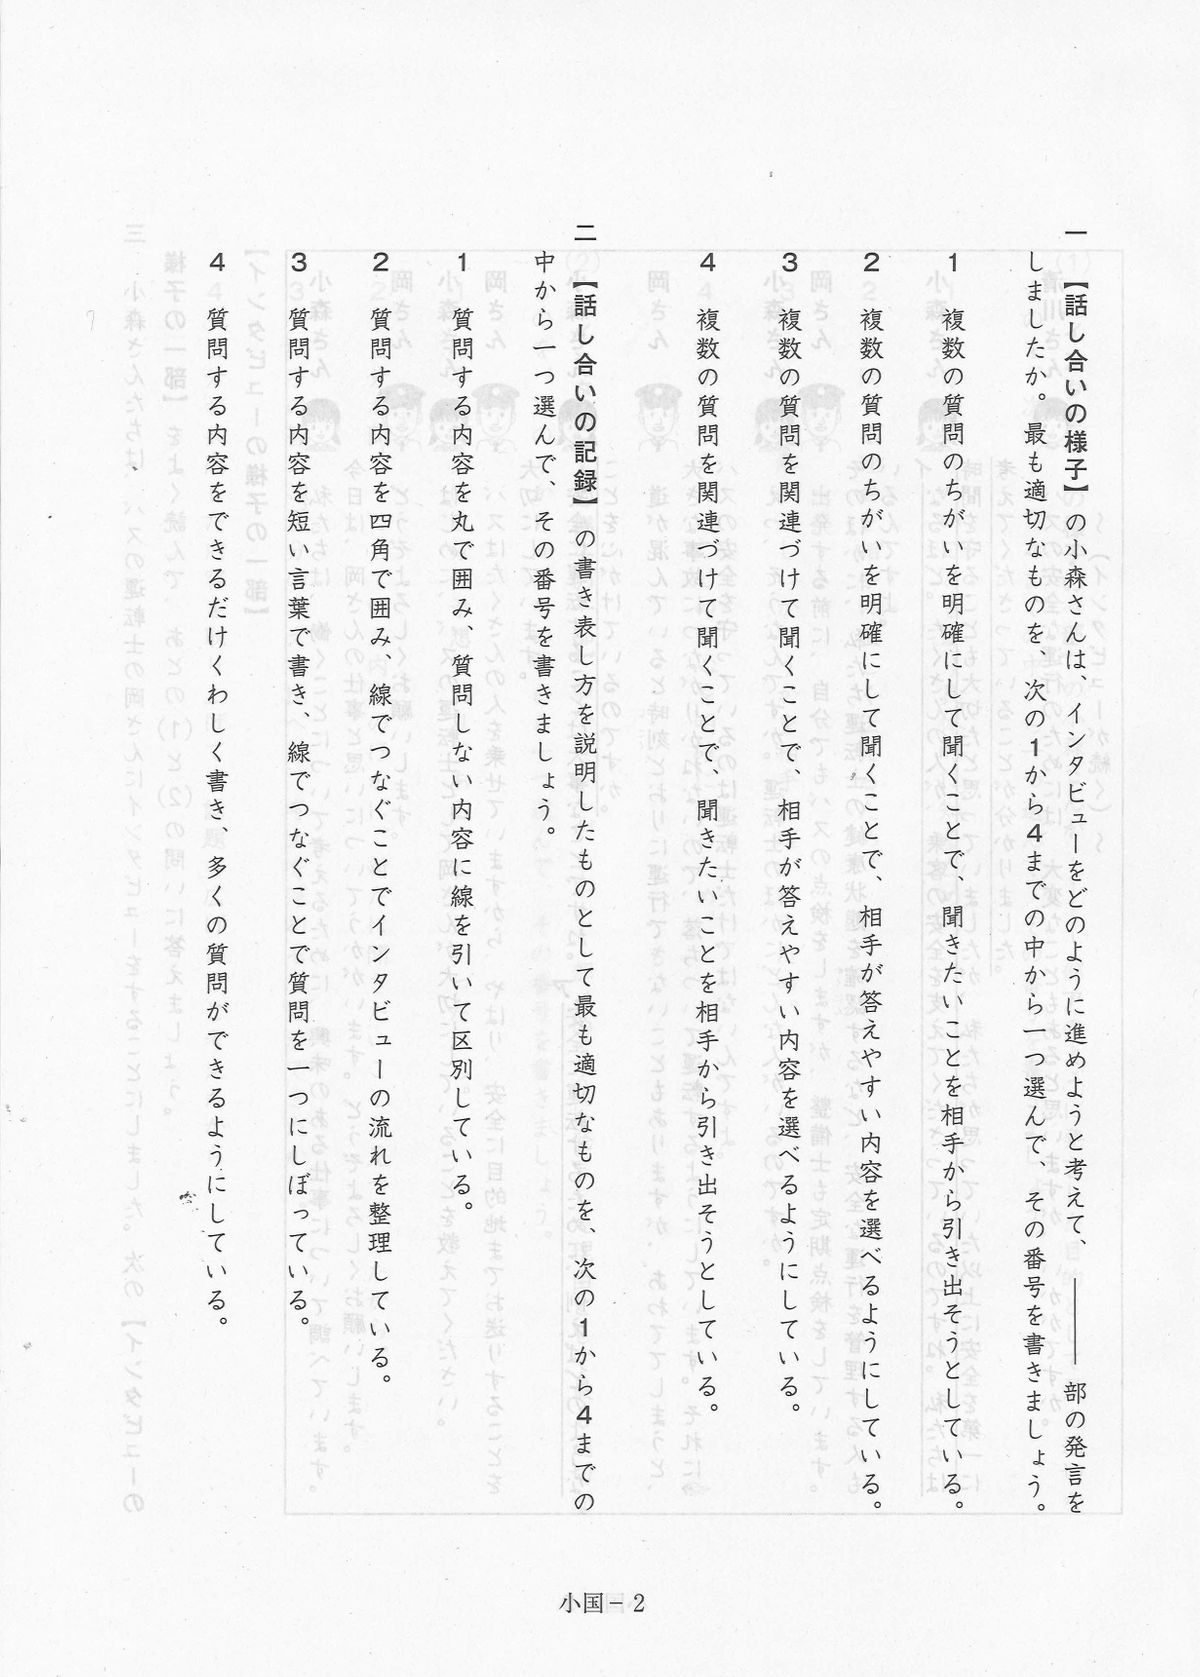 一　【話し合いの様子】の小森さんは、インタビューをどのように進めようと考えて、――――部の発言を
しましたか。最も適切なものを、次の１から４までの中から一つ選んで、その番号を書きましょう。
１　複数の質問のちがいを明確にして聞くことで、聞きたいことを相手から引き出そうとしている。
２　複数の質問のちがいを明確にして聞くことで、相手が答えやすい内容を選べるようにしている。
３　複数の質問を関連づけて聞くことで、相手が答えやすい内容を選べるようにしている。
４　複数の質問を関連づけて聞くことで、聞きたいことを相手から引き出そうとしている。
二　【話し合いの記録】の書き表し方を説明したものとして最も適切なものを、次の１から４までの
中から一つ選んで、その番号を書きましょう。
１　質問する内容を丸で囲み、質問しない内容に線を引いて区別している。
２　質問する内容を四角で囲み、線でつなぐことでインタビューの流れを整理している。
３　質問する内容を短い言葉で書き、線でつなぐことで質問を一つにしぼっている。
４　質問する内容をできるだけくわしく書き、多くの質問ができるようにしている。
小国－2